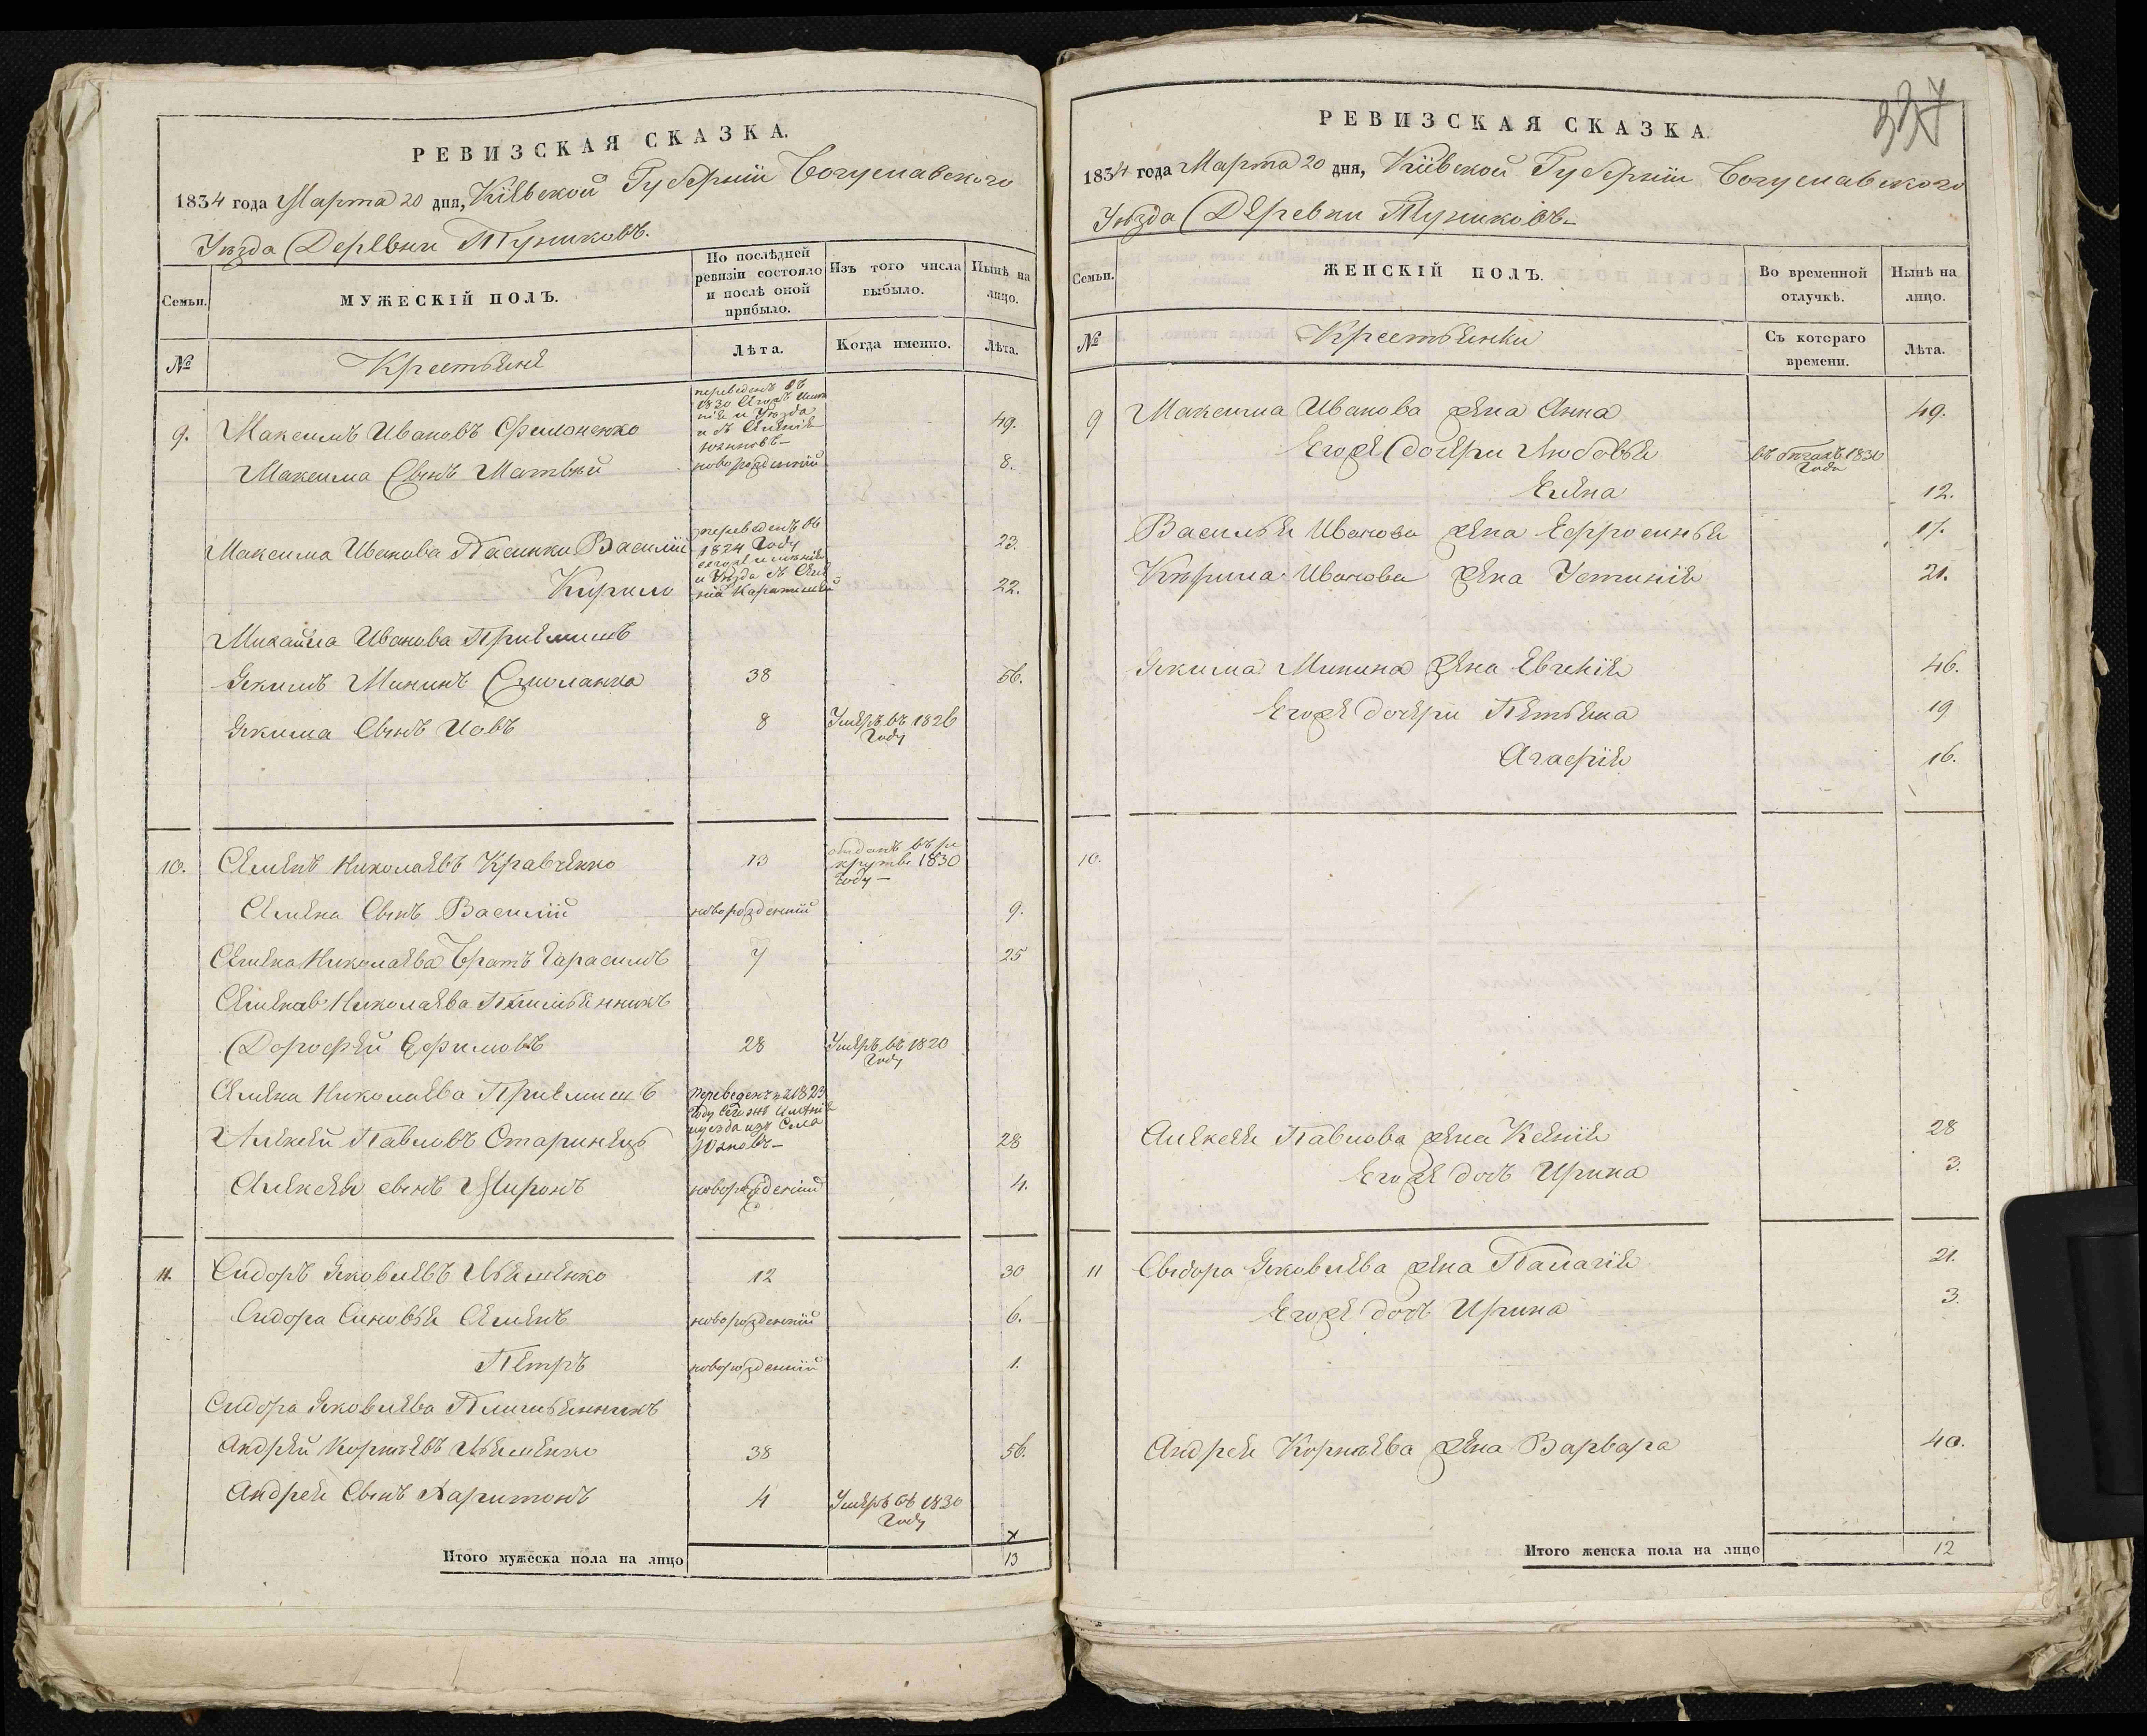 РЕВИЗСКАЯ СКАЗКА.
1834 года Марта 20 дня, Кіевской Губерніи Богуславского
Уѣзда Деревни Тупиковъ.
Семьи.
МУЖЕСКІЙ ПОЛЪ.
По послѣдней ревизіи состояло и послѣ оной прибыло.
Изъ того числа выбыло.
Нынѣ на лицо.
№
Крестьяне
Лѣта.
Когда именно.
Лѣта.
9. Максимъ Ивановъ Филоненко переведенъ въ 1830 и Уѣзда 49.
Максима Сынъ Матвѣй новорожденный 8.
Максима Иванова Пасинки Василій переведенъ въ 1824 Году и Уѣзда 23.
Кирило 22.
Михайла Иванова Приемишъ
Якимъ Мининъ 38 56.
Якима Сынъ Иовъ 8 Умеръ въ 1826 Году
10. Семенъ Николаевъ Кравченко 13 отданъ въ рекруты 1830 Году
Семена Сынъ Василій новорожденный 9.
Семена Николаева Братъ Гарасимъ 7 25
Семена Николаева Племьянникъ
Дорофей Ефимовъ 28 Умеръ въ 1820 Году
Семена Николаева Приемишъ переведенъ въ 1823
Алексей Павловъ Старинецъ Году изъ Села Юхновъ 28
Алексея сынъ Миронъ новорожденный 4.
11. Сидоръ Яковлевъ Ильяшенко 12 30
Сидора Синовья Семенъ новорожденный 6.
Петръ новорожденный 1.
Сидора Яковлева Племьянникъ
Андрей Корнѣевъ Ильяшенко 38 56.
Андрея Сынъ Харитонъ 4 Умеръ въ 1830 Году
Итого мужеска пола на лицо 13
337
РЕВИЗСКАЯ СКАЗКА.
1834 года Марта 20 дня, Кіевской Губерніи Богуславского
Уѣзда Деревни Тупиковъ
Семьи.
ЖЕНСКІЙ ПОЛЪ.
Во временной отлучкѣ.
Нынѣ на лицо.
№
Крестьянки
Съ котораго времени.
Лѣта.
9 Максима Иванова жена Анна 49.
Его же дочери Любовья въ бѣгахъ 1830 Года
Елена 12.
Василья Иванова жена Ефросинья 17.
Кирила Иванова жена Устинія 21.
Якима Минина жена Евгенія 46.
Его же дочери Тетьяна 19
Агафія 16.
10.
Алексея Павлова жена Ксенія 28
Его же дочь Ирина 3.
11 Сидора Яковлева жена Палагія 21.
Его же дочь Ирина 3.
Андрея Корнѣева жена Варвара 40.
Итого женска пола на лицо 12